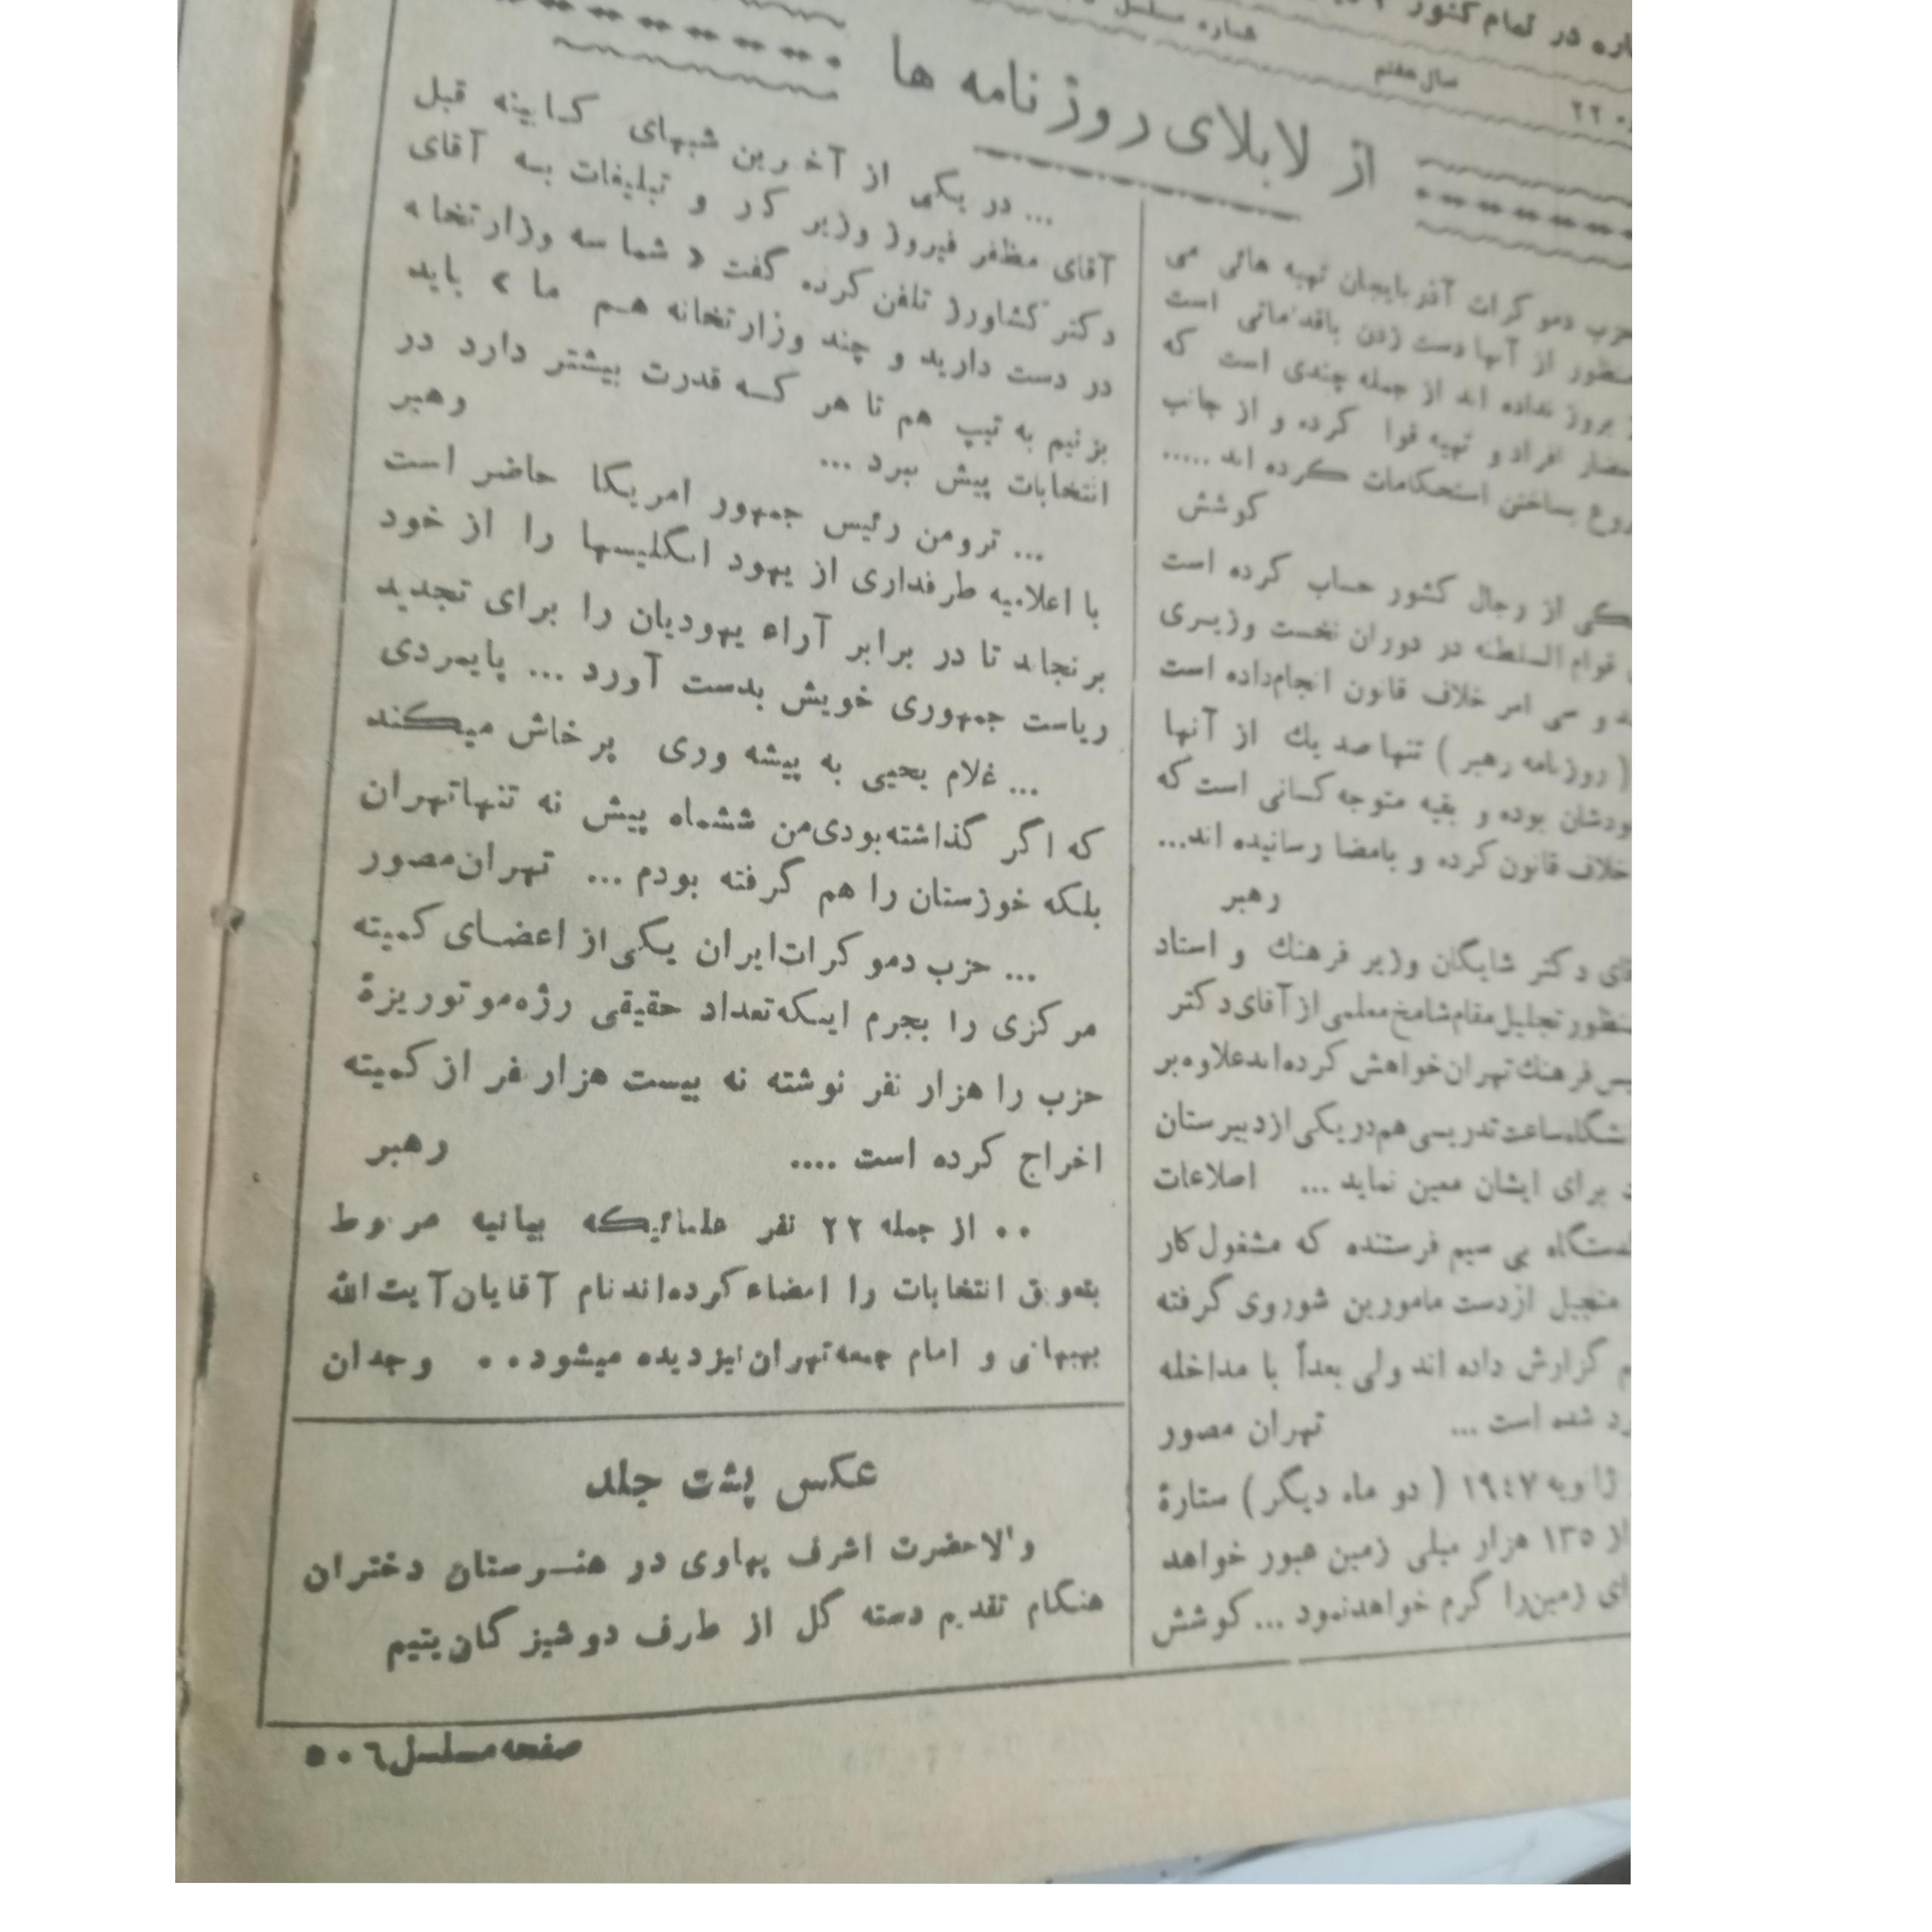 اره در تمام کشور
شماره مسلسل
سال هفتم
۲۲۰
از لابلای روزنامه ها
حزب دموکرات آذربایجان تهیه هائی می
منظور از آنها دست زدن باقداماتی است
بروز نداده اند از جمله چندی است که
حضار افراد و تهیه قوا کرده و از جانب
روع بساختن استحکامات کرده اند .....
کوشش
یکی از رجال کشور حساب کرده است
قوام السلطنه در دوران نخست وزیری
د و سی امر خلاف قانون انجام داده است
( روزنامه رهبر ) تنها صد یك از آنها
ودشان بوده و بقیه متوجه کسانی است که
خلاف قانون کرده و بامضا رسانیده اند...
رهبر
قای دکتر شایگان وزیر فرهنك و استاد
منظور تجلیل مقام شامخ معلمی از آقای دکتر
یس فرهنك تهران خواهش کرده اند علاوه بر
شگاه ساعت تدریسی هم در یکی از دبیرستان
برای ایشان معین نماید ... اطلاعات
دستگاه بی سیم فرستنده که مشغول کار
منجیل از دست مامورین شوروی گرفته
م گزارش داده اند ولی بعداً با مداخله
رد شده است ... تهران مصور
ژانویه ۱۹٤۷ ( دو ماه دیگر ) ستارهٔ
از ۱۳۵ هزار میلی زمین عبور خواهد
ای زمین را گرم خواهد نمود ... کوشش
... در یکی از آخرین شبهای کابینه قبل
آقای مظفر فیروز وزیر کار و تبلیغات به آقای
دکتر کشاورز تلفن کرده گفت « شما سه وزارتخانه
در دست دارید و چند وزارتخانه هم ما » باید
بزنیم به تیپ هم تا هر که قدرت بیشتر دارد در
انتخابات پیش ببرد ... رهبر
... ترومن رئیس جمهور امریکا حاضر است
با اعلامیه طرفداری از یهود انگلیسها را از خود
برنجاند تا در برابر آراء یهودیان را برای تجدید
ریاست جمهوری خویش بدست آورد ... پایمردی
... غلام یحیی به پیشه وری پرخاش میکند
که اگر گذاشته بودی من ششماه پیش نه تنها تهران
بلکه خوزستان را هم گرفته بودم ... تهران مصور
... حزب دموکرات ایران یکی از اعضای کمیته
مرکزی را بجرم اینکه تعداد حقیقی رژه موتوریزهٔ
حزب را هزار نفر نوشته نه بیست هزار نفر از کمیته
اخراج کرده است .... رهبر
.. از جمله ۲۲ نفر علمائیکه بیانیه مربوط
بتعویق انتخابات را امضاء کرده اند نام آقایان آیت الله
بهبهانی و امام جمعه تهران نیز دیده میشود .. وجدان
عکس پشت جلد
والاحضرت اشرف پهلوی در هنرستان دختران
هنگام تقدیم دسته گل از طرف دوشیزگان یتیم
صفحه مسلسل ۵۰٦